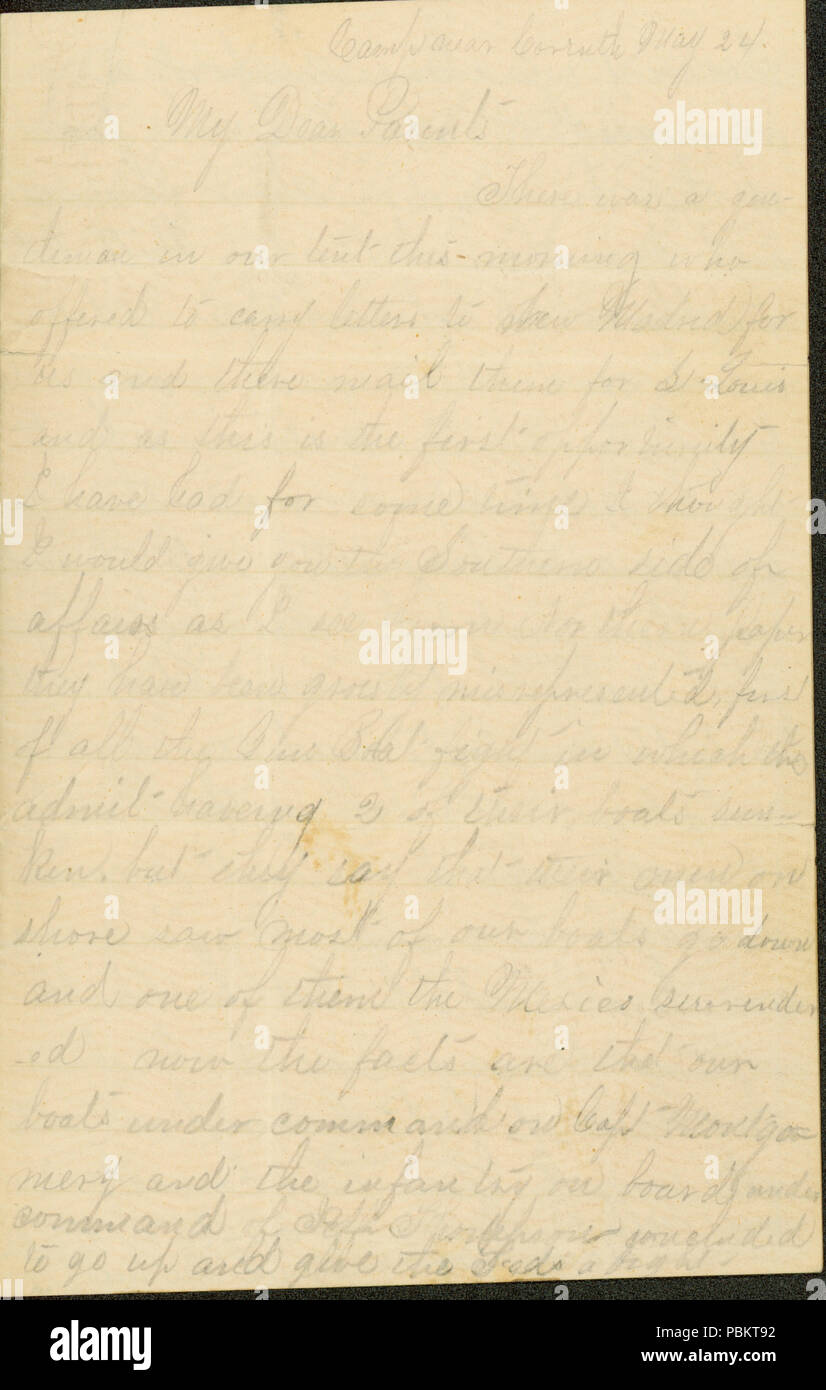 Camp near Corinth May 24.
My Dear Parents
There was a gen-
tleman in our tent this morning who
offered to carry letters to New Madrid for
us and there mail them for St Louis
and as this is the first opportunity
I have had for some time I thought
I would give you the Southern side of
affairs as I see from Northern paper
they have been grossly misrepresented, first
of all the Gun Boat fight in which the
admit haveing 2 of their boats sun-
ken, but they say that their men on
shore saw most of our boats go down
and one of them the Mexico surrender
-ed now the facts are that our
boats under command on Capt Montgo-
mery and the infantry on board under
command of Jeff Thompson concluded
to go up and give the Feds a fight
alamy
alamy stock photo
Image ID: PBKT92
www.alamy.com